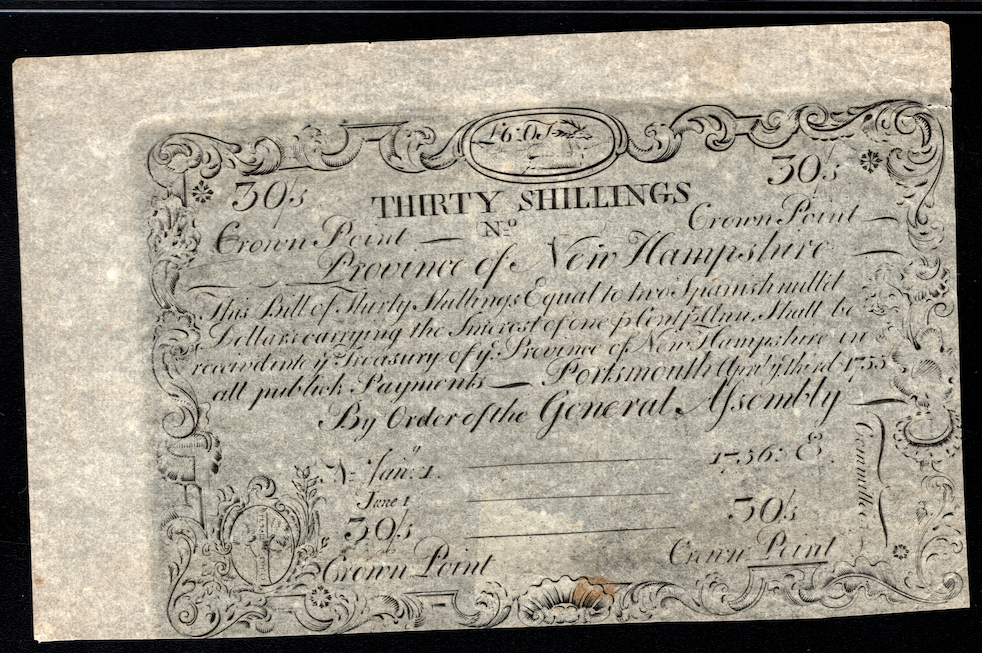 30/s
30/s
THIRTY SHILLINGS
Crown Point
No.
Crown Point
Province of New Hampshire
This Bill of Thirty Shillings Equal to two Spanish mill'd
Dollars carrying the Interest of one p Cent p Ann. Shall be
receivd into ye Treasury of ye Province of New Hampshire in
all publick Payments — Portsmouth April ye third 1755
By Order of the General Assembly
Committee
Jany. 1.
1756: 8
June 1
30/s
30/s
Crown Point
Crown Point